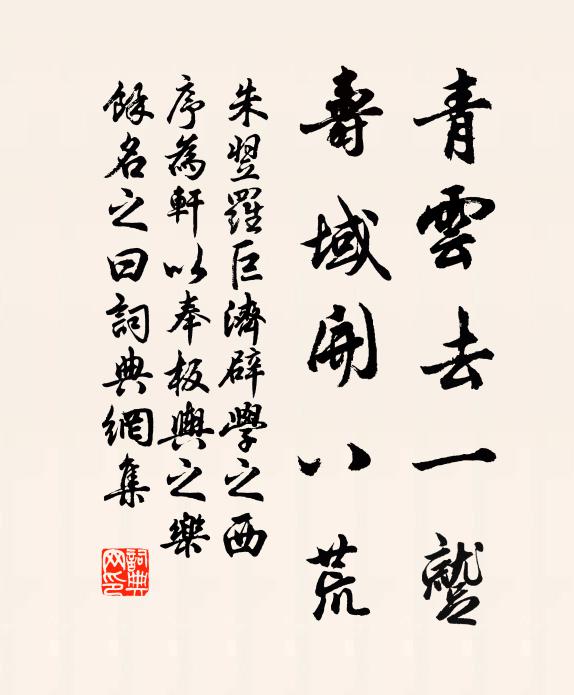 青雲去一蹵
壽域開八荒
朱翌羅巨濟辟學之西
序為軒以奉板輿之樂
餘名之曰詞典網集
詞典网印